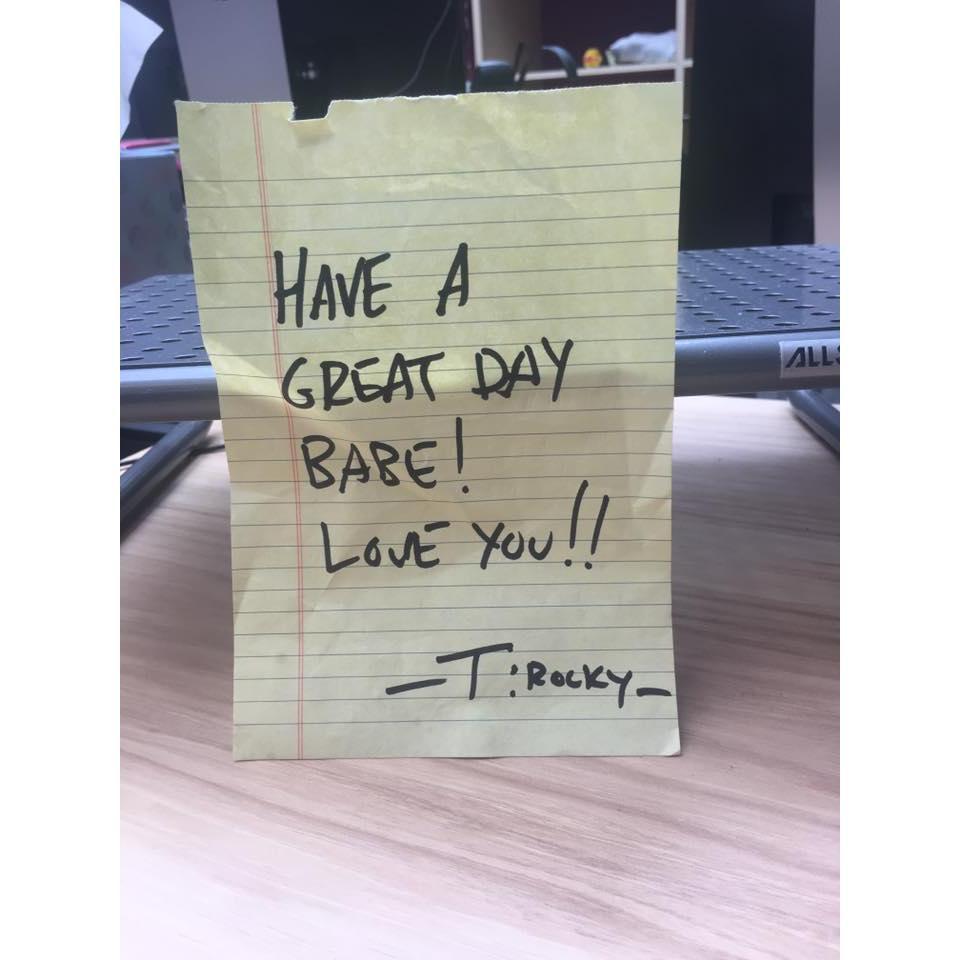 HAVE A
GREAT DAY
BABE!
LOVE YOU!!
—T:ROCKY—